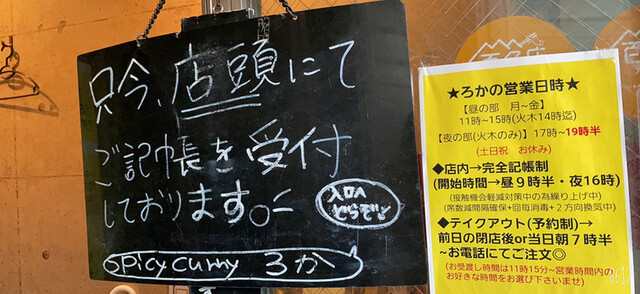 只今、店頭にて
ご記帳を受付
しております。
入口へ
どうぞ！
Spicy Curry ろか
★ろかの営業日時★
【昼の部 月~金】
11時~15時(火木14時迄)
【夜の部(火木のみ)】17時~19時半
(土日祝 お休み)
◆店内→完全記帳制
(開始時間→昼9時半・夜16時)
(接触機会軽減対策中の為繰り上げ中)
(席数減間隔確保+回毎消毒+2方向換気中)
◆テイクアウト(予約制)→
前日の閉店後or当日朝7時半
~お電話にてご注文◎
(お受渡し時間は11時15分~営業時間内の
お好きな時間をお選び下さいませ)